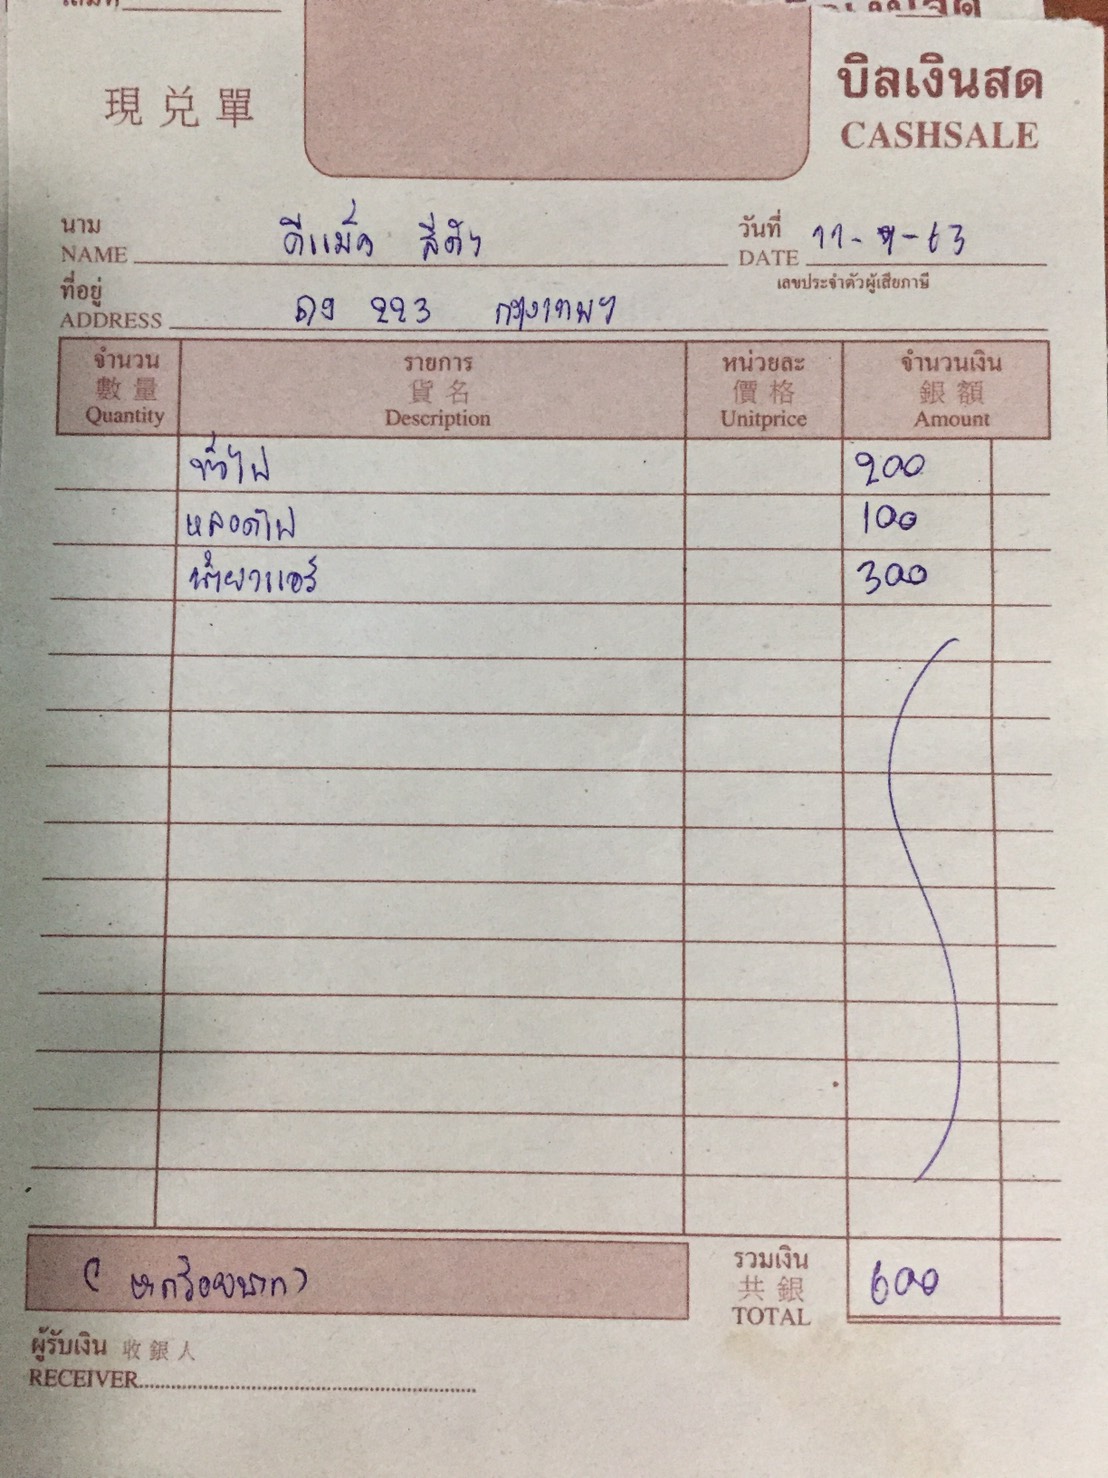 現兑單
บิลเงินสด
CASHSALE
นาม
NAME ดีแม็ค สีดำ
วันที่
DATE 11-9-63
เลขประจำตัวผู้เสียภาษี
ที่อยู่
ADDRESS ฎง 223 กรุงเทพฯ
จำนวน รายการ หน่วยละ จำนวนเงิน
數量 貨名 價格 銀額
Quantity Description Unitprice Amount
ขั้วไฟ 200
หลอดไฟ 100
น้ำยาแอร์ 300
(หกร้อยบาท)
รวมเงิน
共銀
TOTAL 600
ผู้รับเงิน 收銀人
RECEIVER